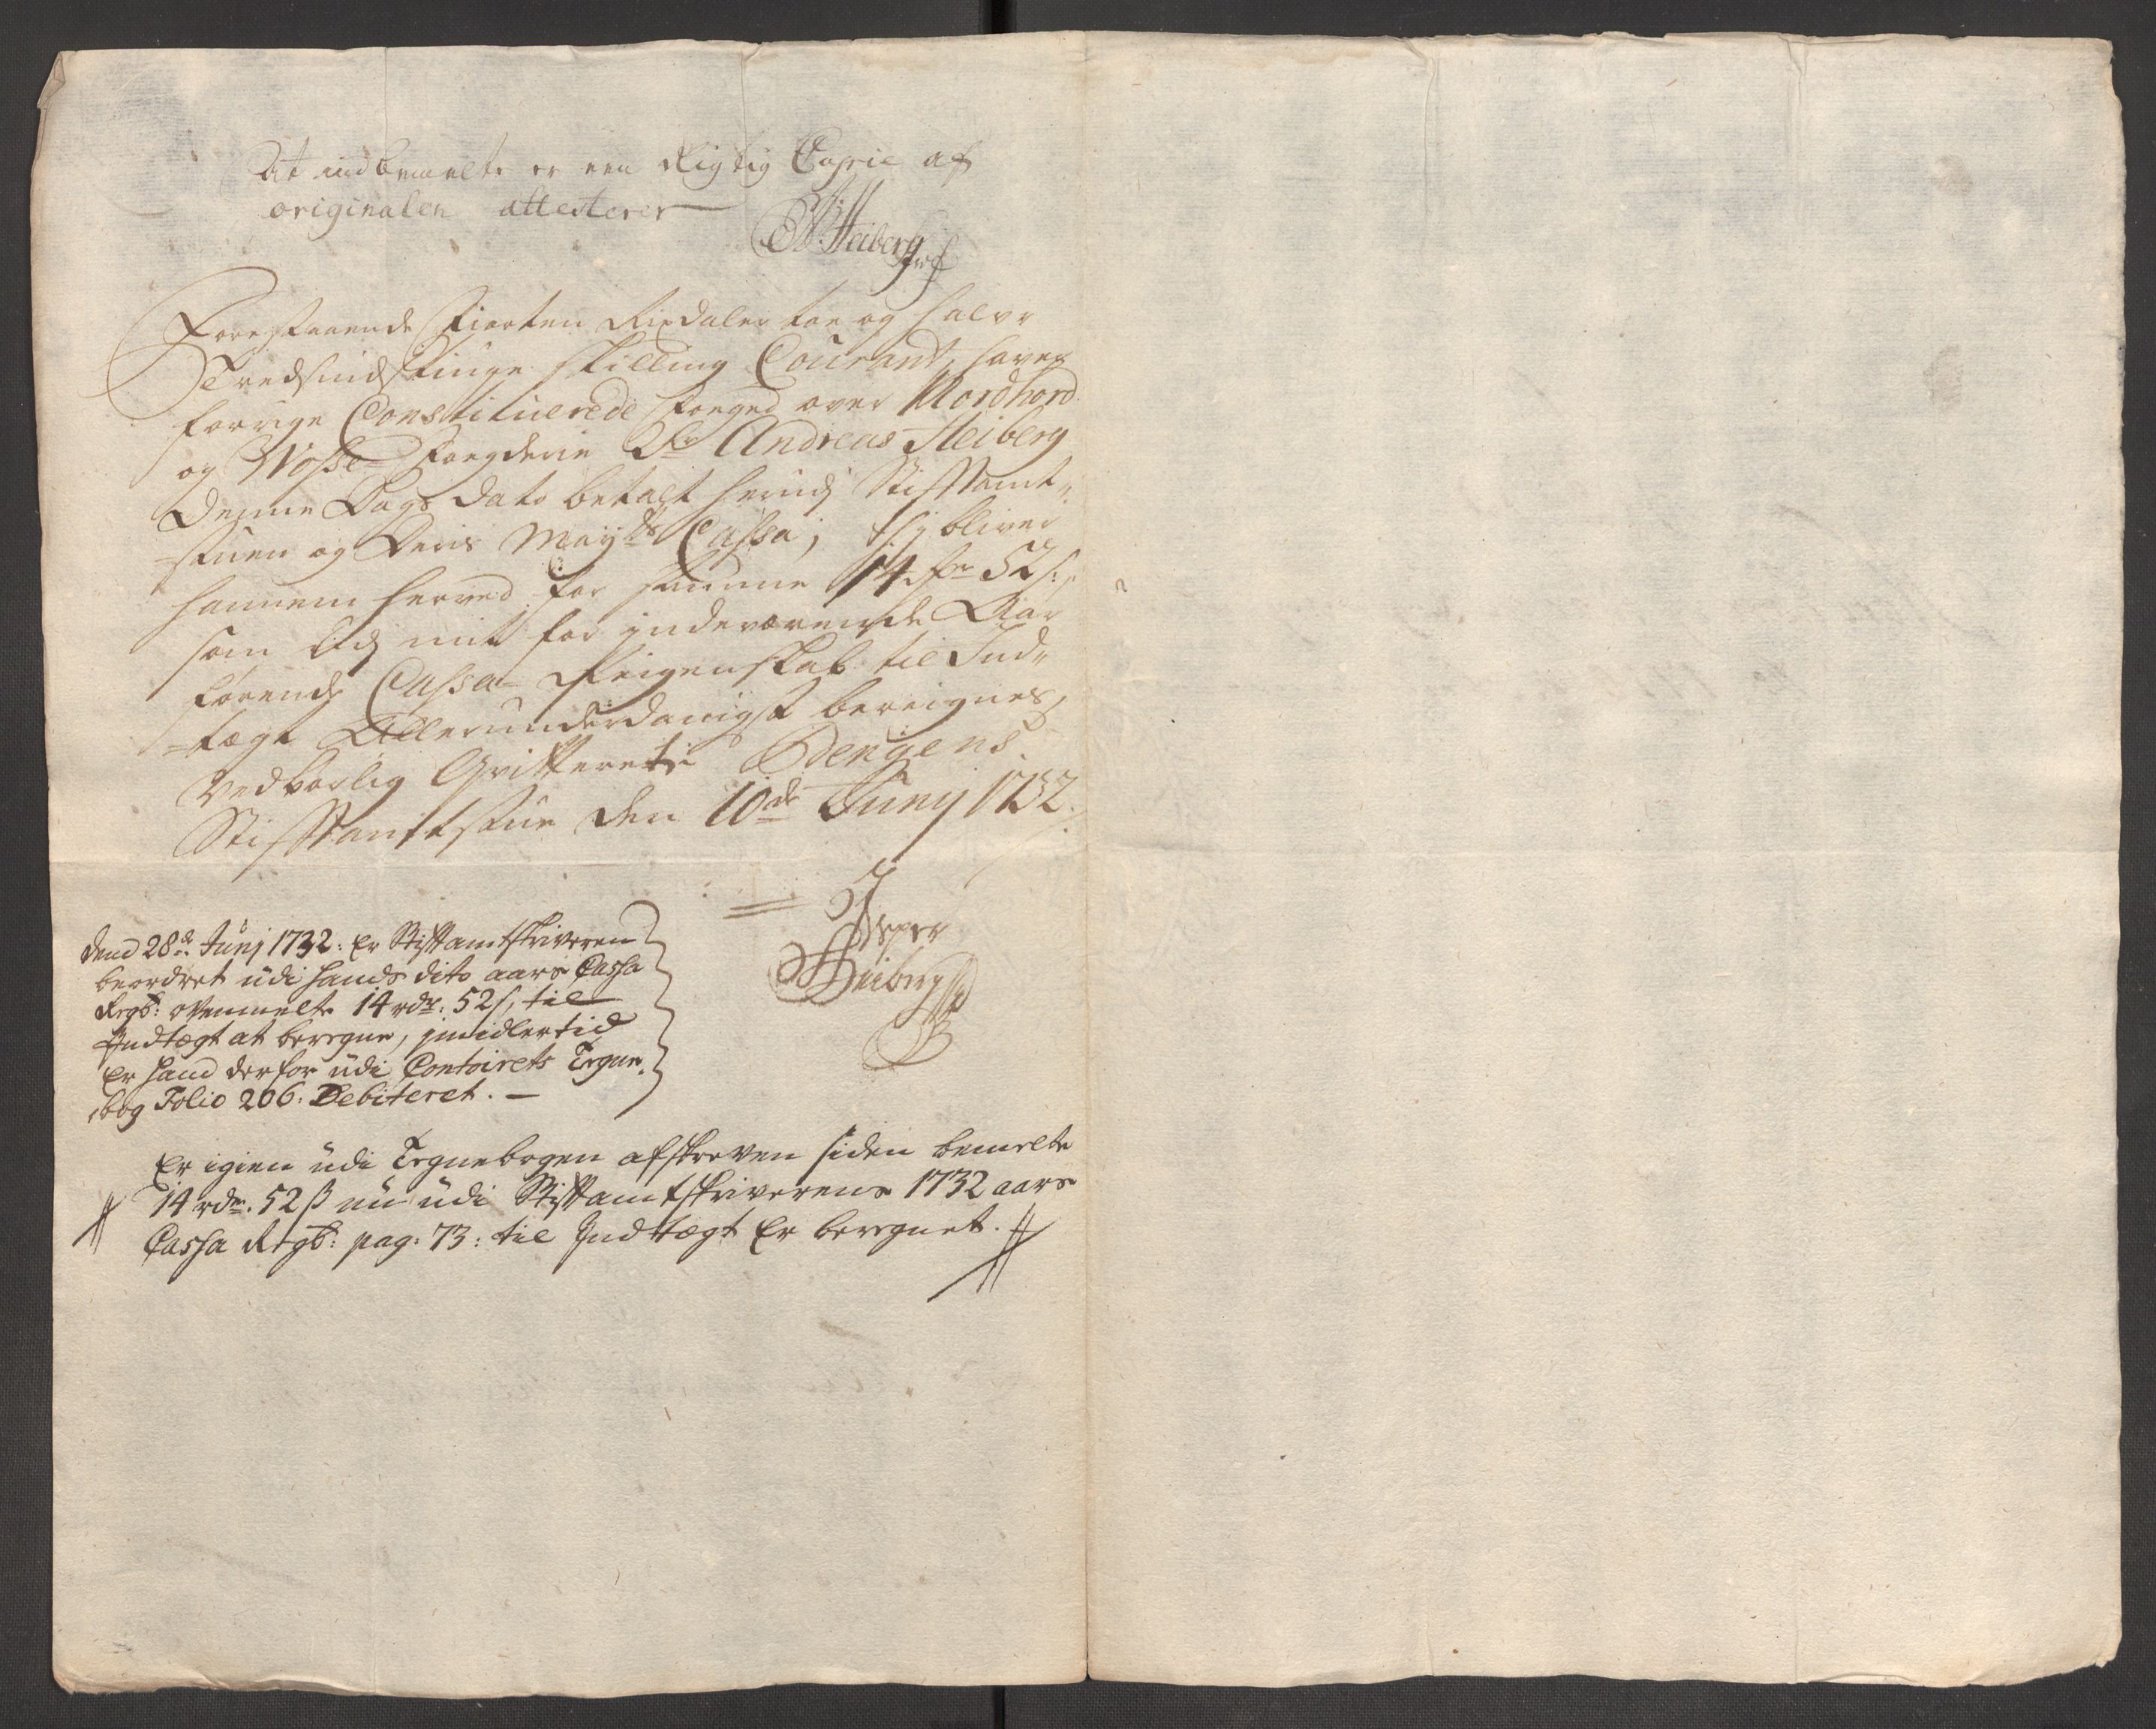 At indbemelte er een Rigtig Copie af
originalen attesterer
A: Heiberg
Forestaaende Fiorten Rixdaler toe og halv-
Tredsindstiuge skilling Courant, haver
forrige Constituerede Foeged over Nordhord
og Wosse Foegderie Sr Andreas Heiberg
Denne Dags Dato betalt herind j Stiftamt-
stuen og Deris Mayts Cassa; thj bliver
hannem herved for summa 14 rdr 52 s:
som udj mit for indeværende Aar
førende Cassa Reigenskab til Ind-
-tægt Allerunderdanigst bereignes,
vedbørlig Qvitteret. Bergens
Stiftamtstue den 10de Junij 1732.
Jesper
Heiberg
dend 28de Junj 1732: er Stiftamtskriveren
beordret udi hands dito aars Cassa
Regb: ovenmelte 14 rdr: 52 s, til
Indtægt at beregne, imidlertid
er hand derfor udi Contoirets Tegne
bog Folio 206. Debiteret. —
Er igien udi Tegnebogen afskreven siden bemelte
14 rdr. 52 ß nu udi Stiftamtskriverens 1732 aars
Cassa Regb: pag: 73: til Indtægt er beregnet.